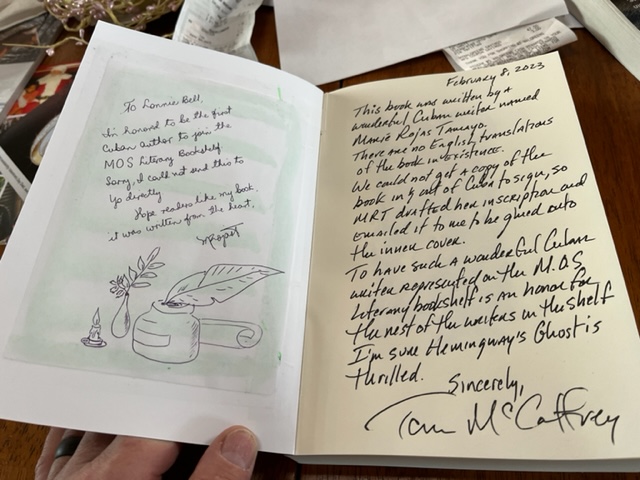 To Lonnie Bell,
I'm honord to be the first
Cuban author to join the
MOS Literary Bookshelf.
Sorry, I could not send this to
yo directly
Hope readers like my book,
it was written from the heart,
February 8, 2023
This book was written by a
wonderful Cuban writer named
Mimie Rojas Tamayo.
There are no English translations
of the book in existence.
We could not get a copy of the
book in & out of Cuba to sign, so
MRT drafted her inscription and
Emailed it to me to be glued onto
the inner cover.
To have such a wonderful Cuban
writer represented on the M.O.S
Literary bookshelf is an honor for
the rest of the writers on the shelf
I'm sure Hemingway's Ghost is
thrilled.
Sincerely,
Tom McCaffrey